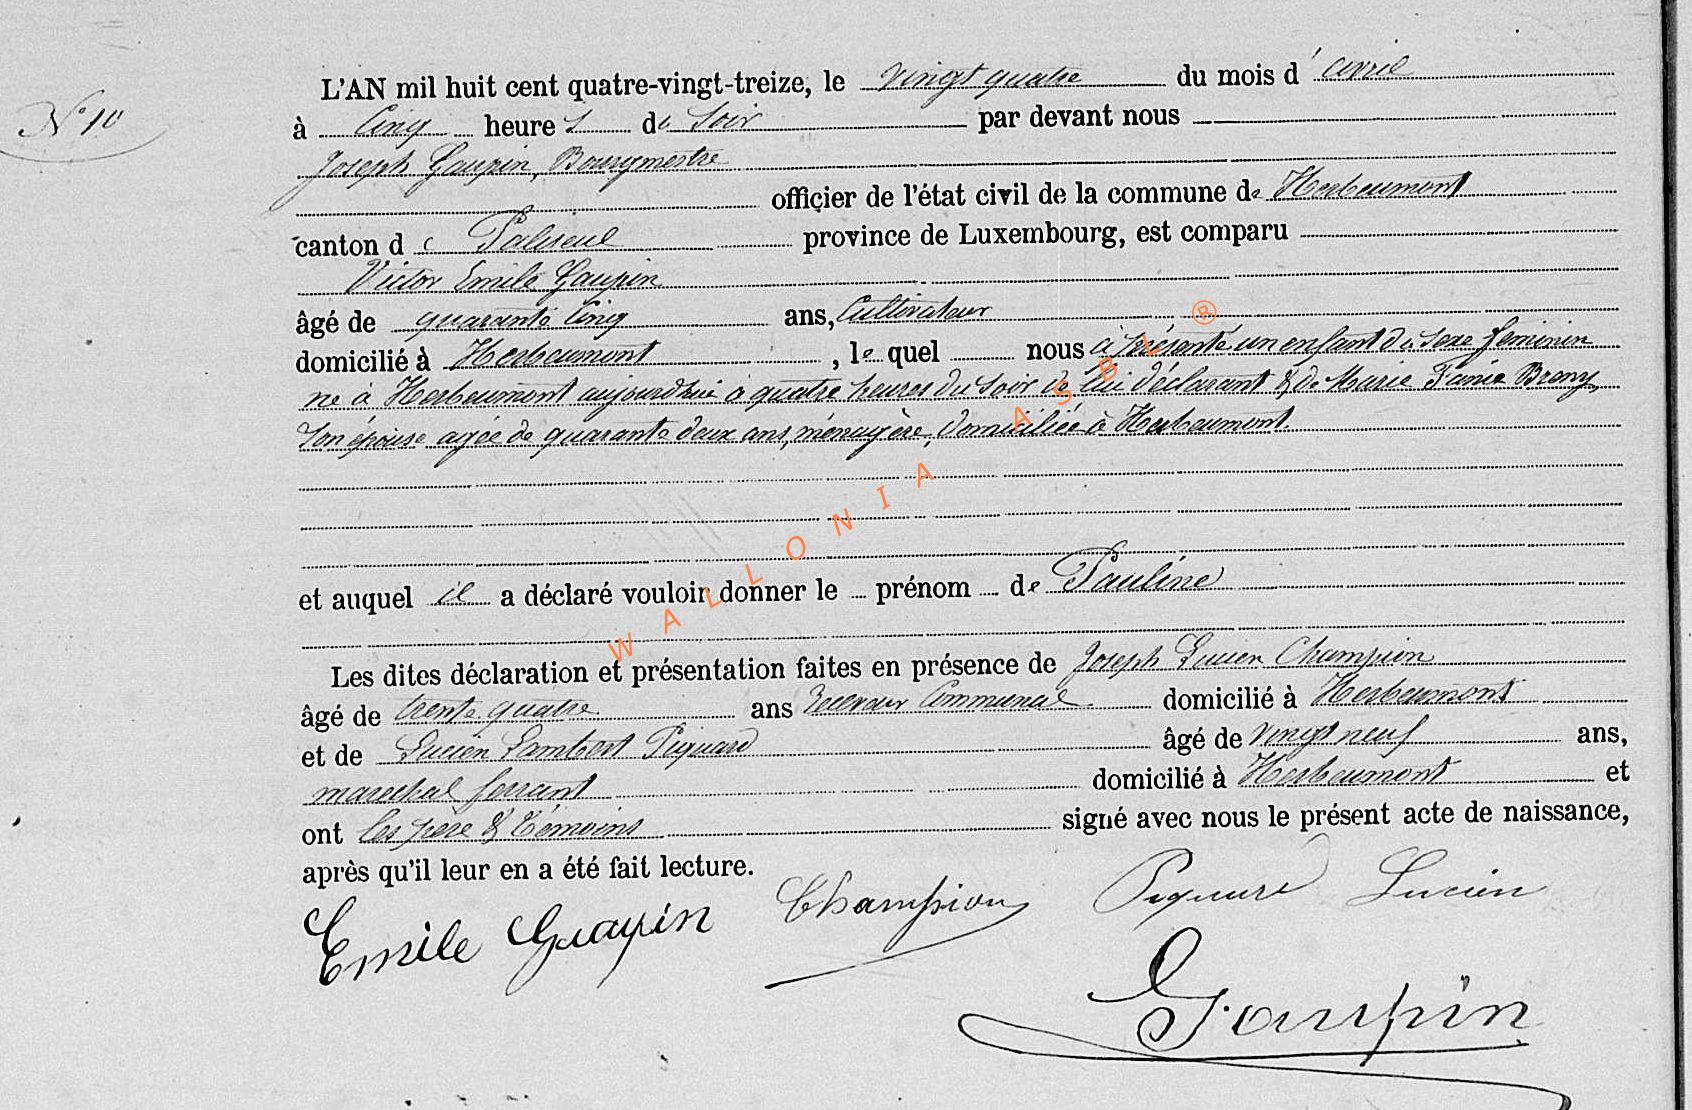 N° 10
L'AN mil huit cent quatre-vingt-treize, le vingt quatre du mois d'avril
à Cinq heures de Soir par devant nous
Joseph Gaupin, Bourgmestre
officier de l'état civil de la commune de Herbeumont
canton de Paliseul province de Luxembourg, est comparu
Victor Emile Gaupin
âgé de quarante Cinq ans, Cultivateur
domicilié à Herbeumont, lequel nous a présenté un enfant du sexe feminin
né à Herbeumont aujourd'hui à quatre heures du Soir de lui déclarant & de Marie Fanie Brony,
son épouse agée de quarante deux ans, ménagère, domiciliée à Herbeumont.
et auquel il a déclaré vouloir donner le prénom de Pauline
Les dites déclaration et présentation faites en présence de Joseph Lucien Champion
âgé de trente quatre ans receveur Communal domicilié à Herbeumont
et de Lucien Lambert Piquard âgé de vingt neuf ans,
marechal ferrant domicilié à Herbeumont et
ont les père & témoins signé avec nous le présent acte de naissance,
après qu'il leur en a été fait lecture.
Emile Gaupin Champion Piquard Lucien
J. Gaupin
WALLONIA ASBL ®